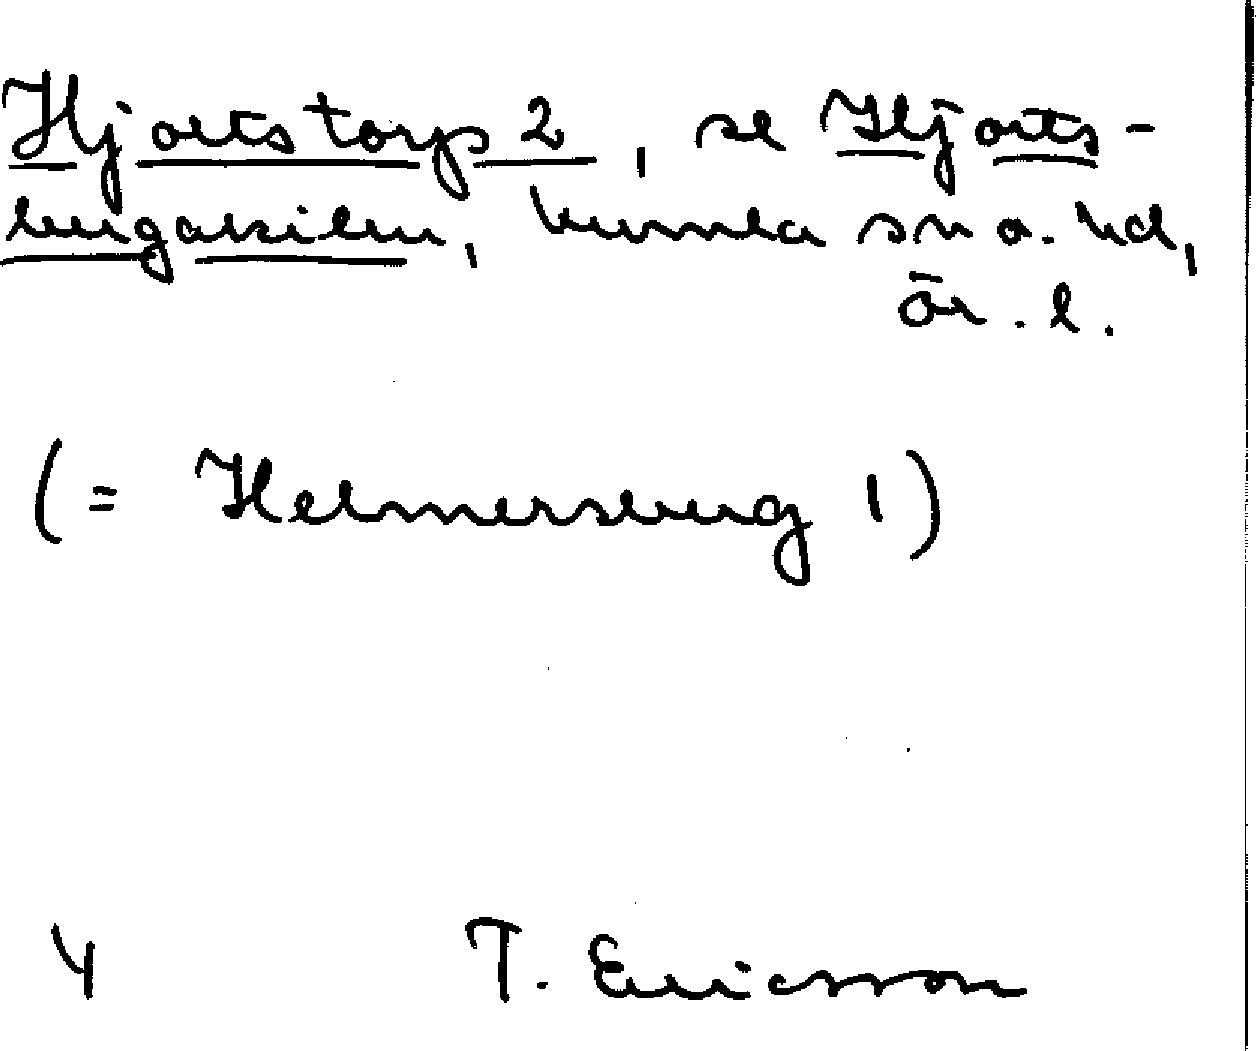 Hjortstorp 2, se Hjorts-
bergakilen, Kumla sn o. hd,
Ör. l.
(= Helmersberg 1)
4 T. Ericsson